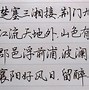 楚塞三湘接,荆门九
江流天地外,山色有
郡邑浮前浦,波澜
襄阳好风日,留醉